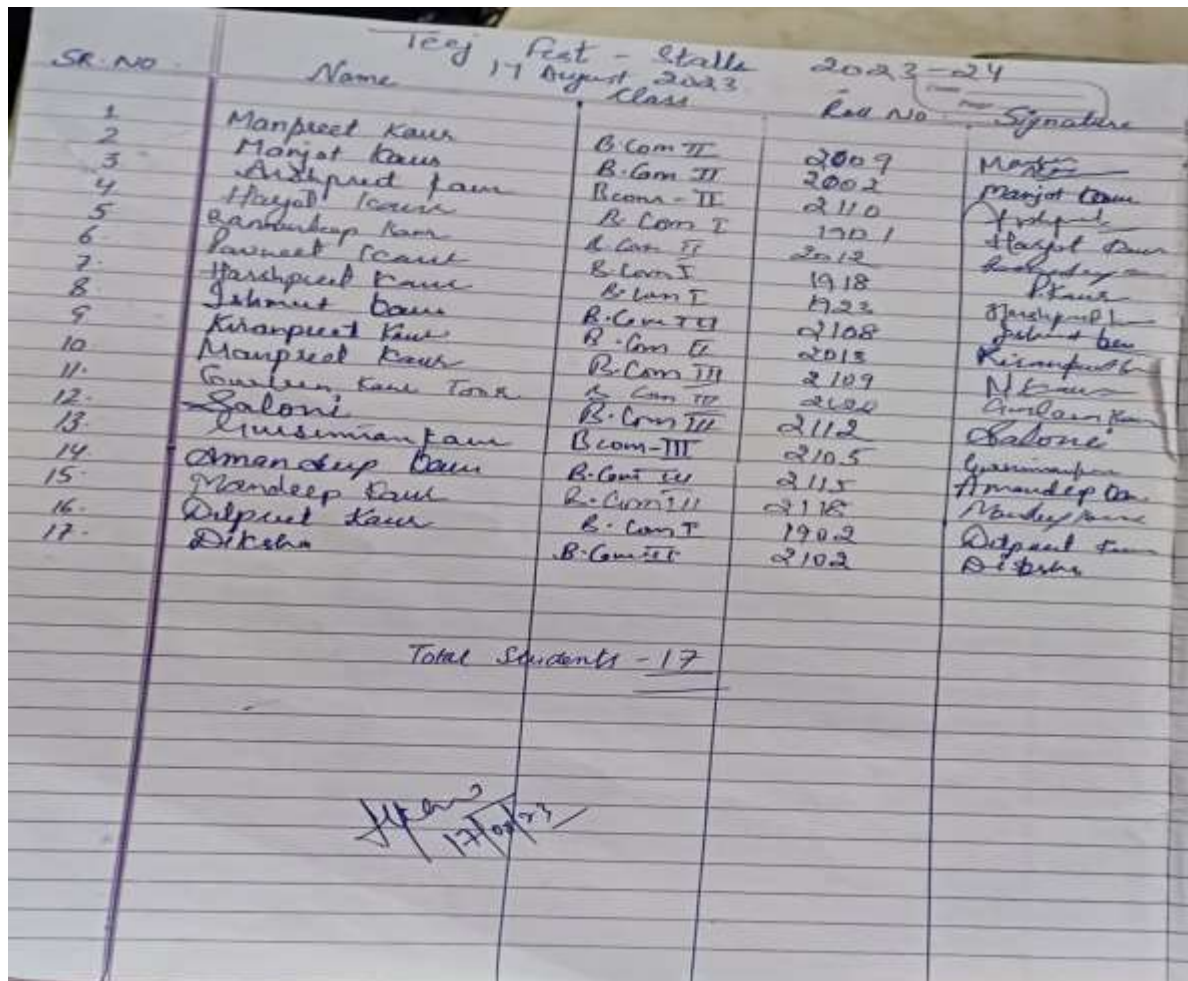 Teej Fest - Stalls 2023-24
17 August 2023
SR. NO. Name Class Roll No Signature
1 Manpreet Kaur B.Com II 2009
2 Manjot Kaur B.Com II 2002 Manjot Kaur
3 Arshpreet Kaur Bcom - II 2110 Arshpreet
4 Harjot Kaur B.Com I 1901 Harjot Kaur
5 Ramandeep Kaur B.Com II 2012
6. Pavneet Kaur B.Com I 1918 P.Kaur
7. Harshpreet Kaur B.Com I 1923
8. Ishmeet Kaur B.Com III 2108
9 Kiranpreet Kaur B.Com II 2013
10 Manpreet Kaur B.Com III 2109
11. Gurleen Kaur B.Com III Gurleen Kaur
12. Saloni B.Com III 2112 Saloni
13. Gursimran Kaur Bcom-III 2105
14 Amandeep Kaur B.Com III 2115 Amandeep
15. Mandeep Kaur B.Com III 2118 Mandeep Kaur
16. Dilpreet Kaur B.Com I 1902 Dilpreet Kaur
17. Diksha B.Com III 2102 Diksha
Total Students - 17
17/08/23